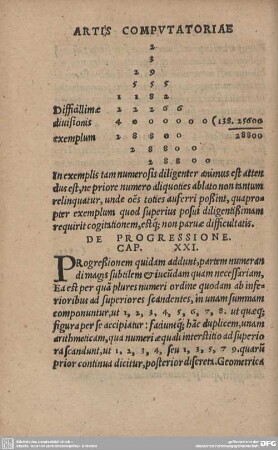 ARTIS COMPVTATORIAE
2
3
2 9
5 5 5
1 1 8 2
Difficilimæ 2 2 2 6 6
diuisionis 4 0 0 0 0 0 0 (138. 25600
exemplum 2 8 8 0 0 28800
2 8 8 0 0
2 8 8 0 0
In exemplis tam numerosis diligenter animus est atten
dus est, ne priore numero aliquoties ablato non tantum
relinquatur, unde oēs toties auferri possint, quapro-
pter exemplum quod superius posui diligentissimam
requirit cogitationem, estq; non paruæ difficultatis.
DE PROGRESSIONE.
CAP. XXI.
PRogressionem quidam addunt, partem numeran
di magis subtilem & iucūdam quam necessariam,
Ea est per quā plures numeri ordine quodam ab infe-
rioribus ad superiores scandentes, in unam summam
componuntur, ut 1, 2, 3, 4, 5, 6, 7, 8. ut quæq;
figura per se accipiatur: faciuntq; hāc duplicem, unam
arithmeticam, qua numeri æquali interstitio ad superio
ra scandunt, ut 1, 2, 3, 4, seu 1, 3, 5, 7 9. quarū
prior continua dicitur, posterior discreta. Geometrica